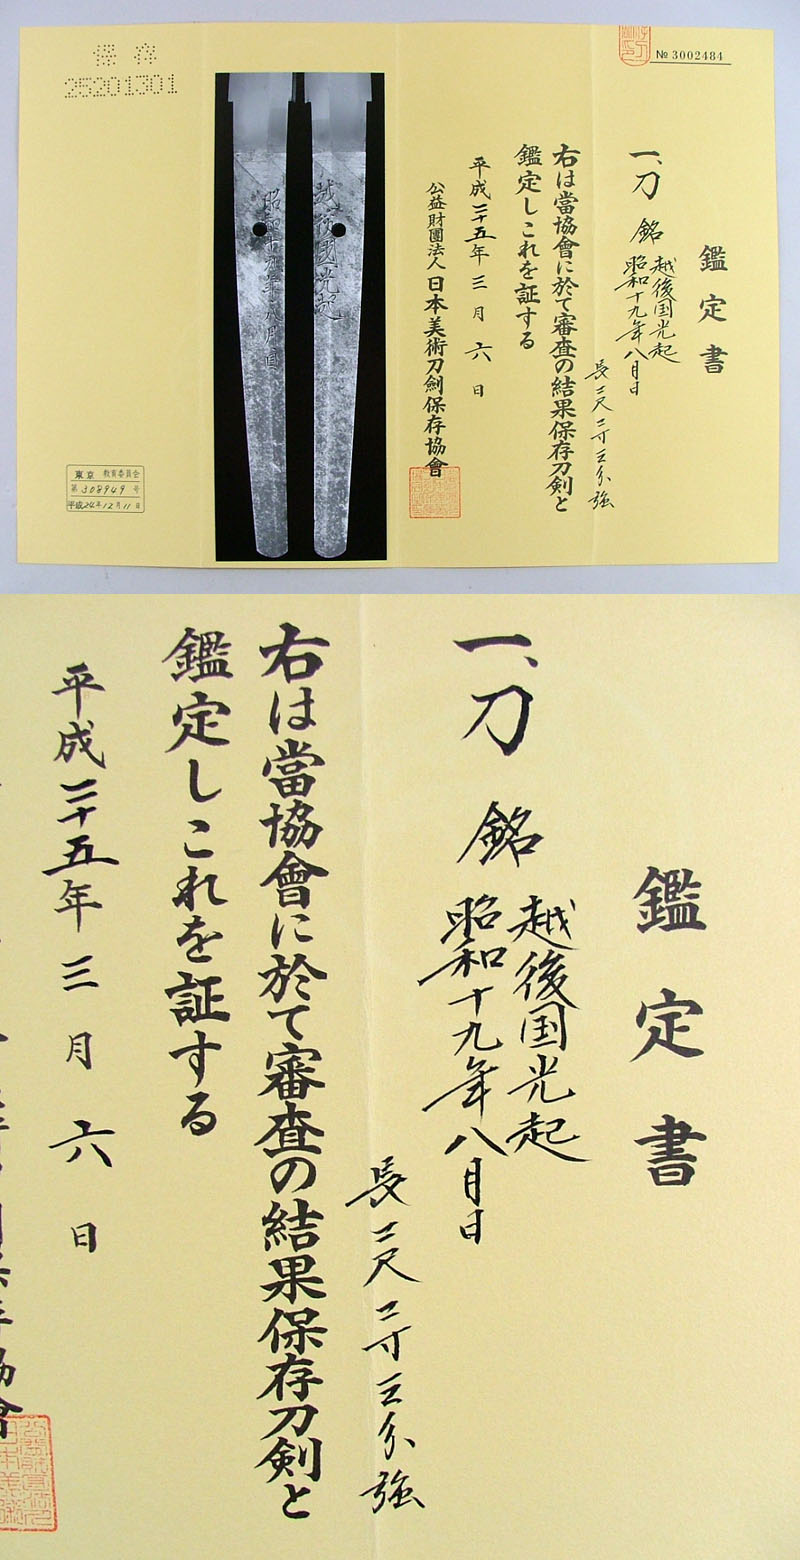 № 3002484
鑑定書
一、刀 銘 越後国光起
昭和十九年八月日
長二尺二寸三分強
右は當協會に於て審査の結果保存刀剣と
鑑定しこれを証する
平成二十五年三月六日
公益財團法人日本美術刀劍保存協會
越後國光起
昭和十九年八月日
保存
25201301
東京 教育委員会
第308949号
平成24年12月11日
鑑定書
一、刀 銘 越後国光起
昭和十九年八月日
長二尺二寸三分強
右は當協會に於て審査の結果保存刀剣と
鑑定しこれを証する
平成二十五年三月六日